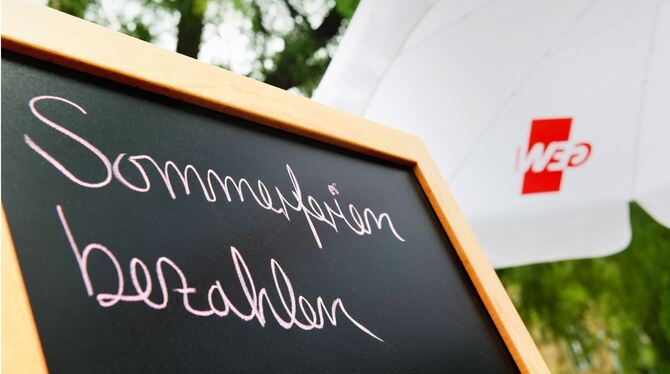 Sommerferien
bezahlen
GEW